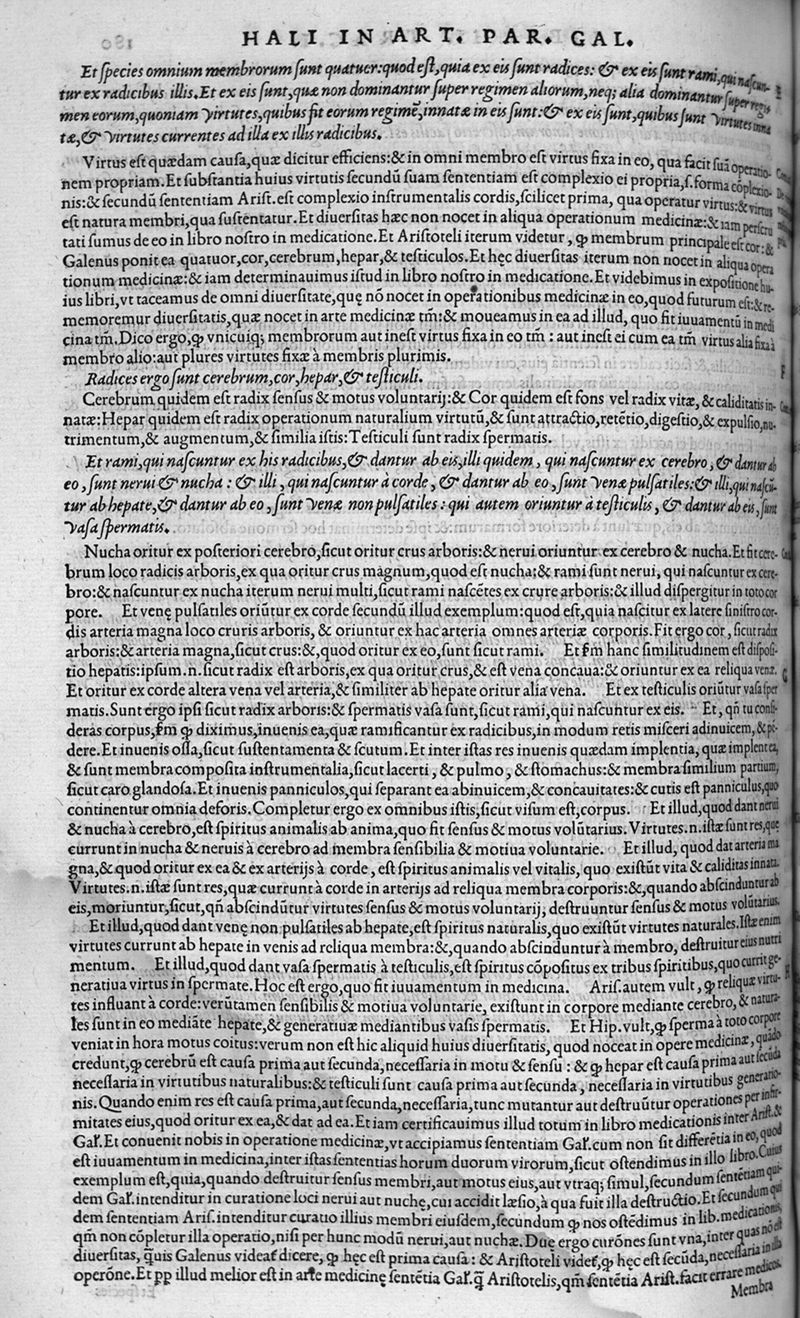 HALI IN ART. PAR. GAL.
Et species omnium membrorum sunt quatuor: quod est, quia ex eis sunt radices: & ex eis sunt rami, qui nascun-
tur ex radicibus illis. Et ex eis sunt, quæ non dominantur super regimen aliorum, neq; alia dominantur super regi-
men eorum, quoniam virtutes, quibus fit eorum regimẽ, innatæ in eis sunt: & ex eis sunt, quibus sunt virtutes inna
tæ, & virtutes currentes ad illa ex illis radicibus.
Virtus est quædam causa, quæ dicitur efficiens: & in omni membro est virtus fixa in eo, qua facit suã operatio-
nem propriam. Et substantia huius virtutis secundũ suam sententiam est complexio ei propria, s. forma cõplexio-
nis: & secundũ sententiam Arist. est complexio instrumentalis cordis, scilicet prima, qua operatur virtus: & virtus
est natura membri, qua sustentatur. Et diuersitas hæc non nocet in aliqua operationum medicinæ: & iam perscru
tati sumus de eo in libro nostro in medicatione. Et Aristoteli iterum videtur, ꝙ membrum principale est cor: &
Galenus ponit ea quatuor, cor, cerebrum, hepar, & testiculos. Et hęc diuersitas iterum non nocet in aliqua opera
tionum medicinæ: & iam determinauimus istud in libro nostro in medicatione. Et videbimus in expositione hu-
ius libri, vt taceamus de omni diuersitate, quę nõ nocet in operationibus medicinæ in eo, quod futurum est: & re-
memoremur diuersitatis, quæ nocet in arte medicinæ tm̃: & moueamus in ea ad illud, quo fit iuuamentũ in medi
cina tm̃. Dico ergo, ꝙ vnicuiq; membrorum aut inest virtus fixa in eo tm̃: aut inest ei cum ea tm̃ virtus alia fixa à
membro alio: aut plures virtutes fixæ à membris plurimis.
Radices ergo sunt cerebrum, cor, hepar, & testiculi.
Cerebrum quidem est radix sensus & motus voluntarij: & Cor quidem est fons vel radix vitæ, & caliditatis in-
natæ: Hepar quidem est radix operationum naturalium virtutũ, & sunt attractio, retẽtio, digestio, & expulsio, nu-
trimentum, & augmentum, & similia istis: Testiculi sunt radix spermatis.
Et rami, qui nascuntur ex his radicibus, & dantur ab eis, illi quidem, qui nascuntur ex cerebro, & dantur ab
eo, sunt nerui & nucha: & illi, qui nascuntur à corde, & dantur ab eo, sunt venæ pulsatiles: & illi, qui nascũ-
tur ab hepate, & dantur ab eo, sunt venæ non pulsatiles: qui autem oriuntur à testiculis, & dantur ab eis, sunt
vasa spermatis.
Nucha oritur ex posteriori cerebro, sicut oritur crus arboris: & nerui oriuntur ex cerebro & nucha. Et fit cere-
brum loco radicis arboris, ex qua oritur crus magnum, quod est nucha: & rami sunt nerui, qui nascuntur ex cere-
bro: & nascuntur ex nucha iterum nerui multi, sicut rami nascẽtes ex crure arboris: & illud dispergitur in toto cor
pore. Et venę pulsatiles oriũtur ex corde secundũ illud exemplum: quod est, quia nascitur ex latere sinistro cor-
dis arteria magna loco cruris arboris, & oriuntur ex hac arteria omnes arteriæ corporis. Fit ergo cor, sicut radix
arboris: & arteria magna, sicut crus: &, quod oritur ex eo, sunt sicut rami. Et fm̃ hanc similitudinem est disposi-
tio hepatis: ipsum .n. sicut radix est arboris, ex qua oritur crus, & est vena concaua: & oriuntur ex ea reliqua venæ.
Et oritur ex corde altera vena vel arteria, & similiter ab hepate oritur alia vena. Et ex testiculis oriũtur vasa sper
matis. Sunt ergo ipsi sicut radix arboris: & spermatis vasa sunt, sicut rami, qui nascuntur ex eis. Et, qñ tu consi-
deras corpus, fm̃ ꝙ diximus, inuenis ea, quæ ramificantur ex radicibus, in modum retis misceri adinuicem, & pẽ-
dere. Et inuenis ossa, sicut sustentamenta & scutum. Et inter istas res inuenis quædam implentia, quæ implent ea,
& sunt membra composita instrumentalia, sicut lacerti, & pulmo, & stomachus: & membra similium partium,
sicut caro glandosa. Et inuenis panniculos, qui separant ea abinuicem, & concauitates: & cutis est panniculus, quo
continentur omnia deforis. Completur ergo ex omnibus istis, sicut visum est, corpus. Et illud, quod dant nerui
& nucha à cerebro, est spiritus animalis ab anima, quo fit sensus & motus volũtarius. Virtutes .n. istæ sunt res, quę
currunt in nucha & neruis à cerebro ad membra sensibilia & motiua voluntarie. Et illud, quod dat arteria ma
gna, & quod oritur ex ea & ex arterijs à corde, est spiritus animalis vel vitalis, quo existũt vita & caliditas innata.
Virtutes .n. istæ sunt res, quæ currunt à corde in arterijs ad reliqua membra corporis: &, quando abscinduntur ab
eis, moriuntur, sicut, qñ abscindũtur virtutes sensus & motus voluntarij, destruuntur sensus & motus volũtarius.
Et illud, quod dant venę non pulsatiles ab hepate, est spiritus naturalis, quo existũt virtutes naturales. Istæ enim
virtutes currunt ab hepate in venis ad reliqua membra: &, quando abscinduntur à membro, destruitur eius nutri
mentum. Et illud, quod dant vasa spermatis à testiculis, est spiritus cõpositus ex tribus spiritibus, quo currit ge-
neratiua virtus in spermate. Hoc est ergo, quo fit iuuamentum in medicina. Aris. autem vult, ꝙ reliquæ virtu-
tes influant à corde: verũtamen sensibilis & motiua voluntarie, existunt in corpore mediante cerebro, & natura-
les sunt in eo mediãte hepate, & generatiuæ mediantibus vasis spermatis. Et Hip. vult, ꝙ sperma à toto corpore
veniat in hora motus coitus: verum non est hic aliquid huius diuersitatis, quod noceat in opere medicinæ, quãdo
credunt, ꝙ cerebrũ est causa prima aut secunda, necessaria in motu & sensu: & ꝙ hepar est causa prima aut secũda
necessaria in virtutibus naturalibus: & testiculi sunt causa prima aut secunda, necessaria in virtutibus generatio-
nis. Quando enim res est causa prima, aut secunda, necessaria, tunc mutantur aut destruũtur operationes per infir-
mitates eius, quod oritur ex ea, & dat ad ea. Et iam certificauimus illud totum in libro medicationis inter Arist. &
Gal. Et conuenit nobis in operatione medicinæ, vt accipiamus sententiam Gal. cum non sit differẽtia in eo, quod
est iuuamentum in medicina, inter istas sententias horum duorum virorum, sicut ostendimus in illo libro. Cuius
exemplum est, quia, quando destruitur sensus membri, aut motus eius, aut vtraq; simul, secundum sententiam qui-
dem Gal. intenditur in curatione loci nerui aut nuchę, cui accidit læsio, à qua fuit illa destructio. Et secundum
dem sententiam Aris. intenditur curatio illius membri eiusdem, secundum ꝙ nos ostẽdimus in lib. medicationis,
qm̃ non cõpletur illa operatio, nisi per hunc modũ nerui, aut nuchæ. Duę ergo curõnes sunt vna, inter quas nõ est
diuersitas, q̃uis Galenus videat̃ dicere, ꝙ hęc est prima causa: & Aristoteli videt̃, ꝙ hęc est secũda, necessaria in illa
operõne. Et ꝓp illud melior est in arte medicinę sentẽtia Gal. q̃ Aristotelis, qm̃ sentẽtia Arist. facit errare medicos.
Membra